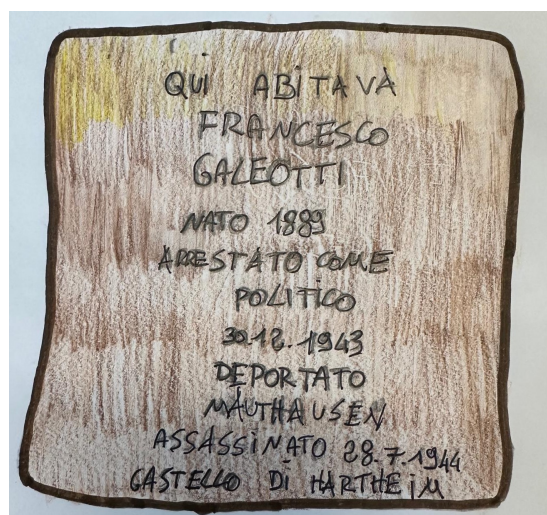 QUI ABITAVA
FRANCESCO
GALEOTTI
NATO 1889
ARRESTATO COME
POLITICO
30.12.1943
DEPORTATO
MAUTHAUSEN
ASSASSINATO 28.7.1944
CASTELLO DI HARTHEIM